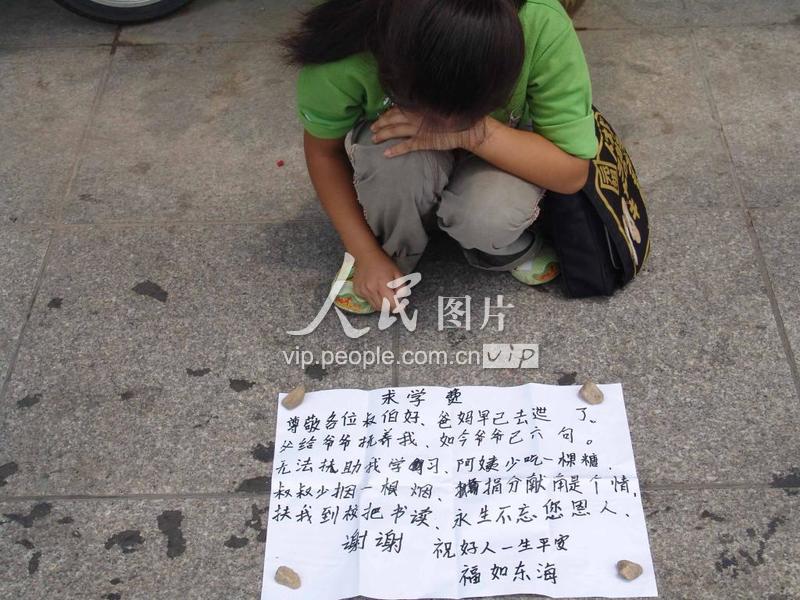 人民图片
vip.people.com.cn vip
求学费
尊敬各位叔伯好、爸妈早已去逝了。
必给爷爷抚养我、如今爷爷已六旬。
无法抚助我学习、阿姨少吃一棵糖、
叔叔少捆一根烟、捐分献角是个情、
扶我到校把书读、永生不忘您恩人、
谢谢 祝好人一生平安
福如东海